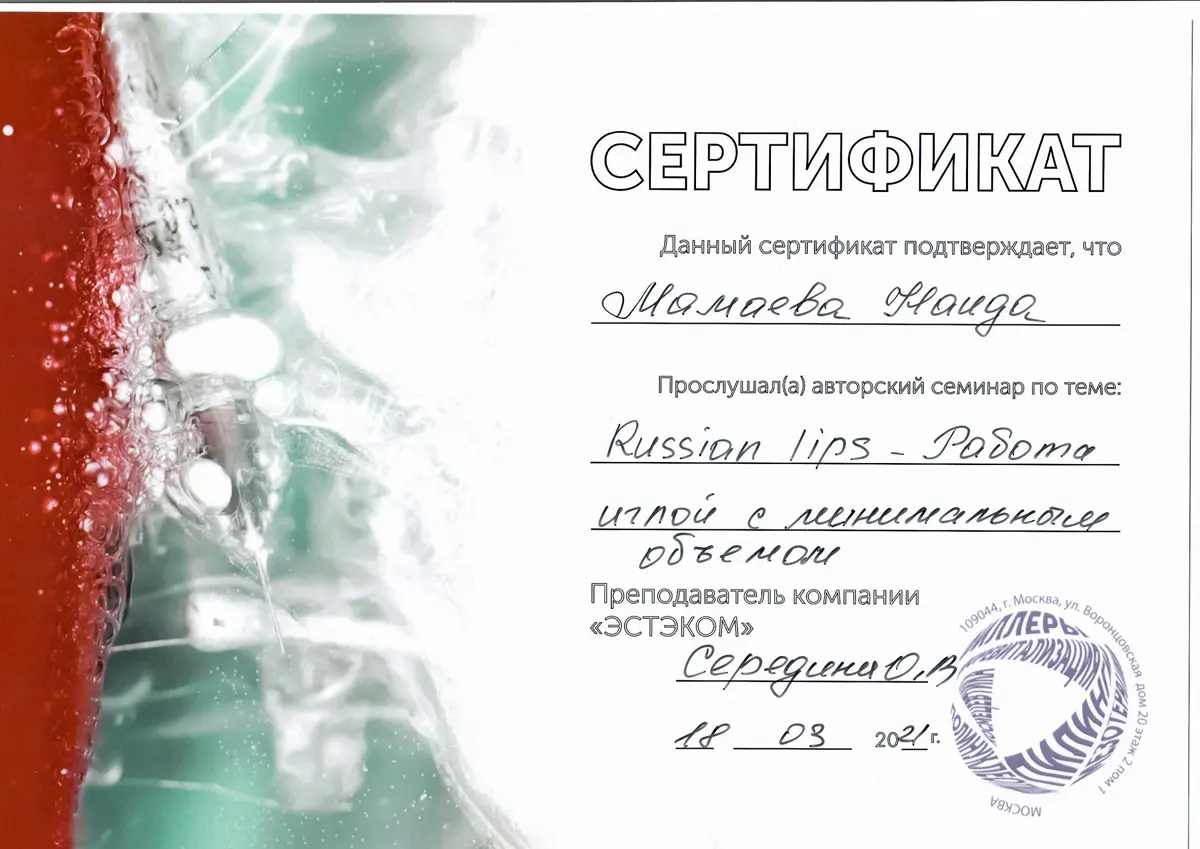 СЕРТИФИКАТ
Данный сертификат подтверждает, что
Мамаева Наида
Прослушал(а) авторский семинар по теме:
Russian lips - Работа
иглой с минимальным
объемом
Преподаватель компании
«ЭСТЭКОМ»
Середина О.В
18 03 2021 г.
109044, г. Москва, ул. Воронцовская дом 20 этаж 2 пом 1
МОСКВА
ФИЛЛЕРЫ
РЕВИТАЛИЗАЦИЯ
ПИЛИНГ